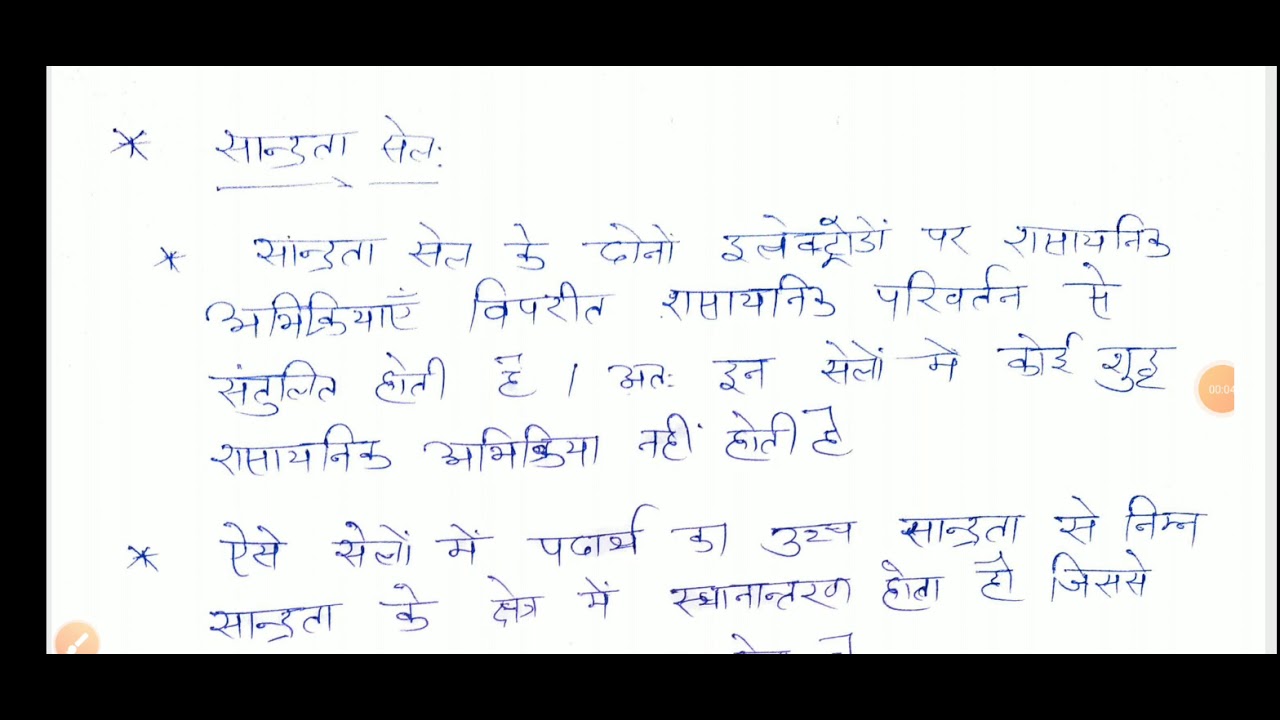 * सान्द्रता सेल:
* सांन्द्रता सेल के दोनों इलेक्ट्रोडों पर रासायनिक
अभिक्रियाएँ विपरीत रासायनिक परिवर्तन से
संतुलित होती है । अतः इन सेलों में कोई शुद्ध
रासायनिक अभिक्रिया नहीं होती है
00:04
* ऐसे सेलों में पदार्थ का उच्च सान्द्रता से निम्न
सान्द्रता के क्षेत्र में स्थानान्तरण होता है जिससे